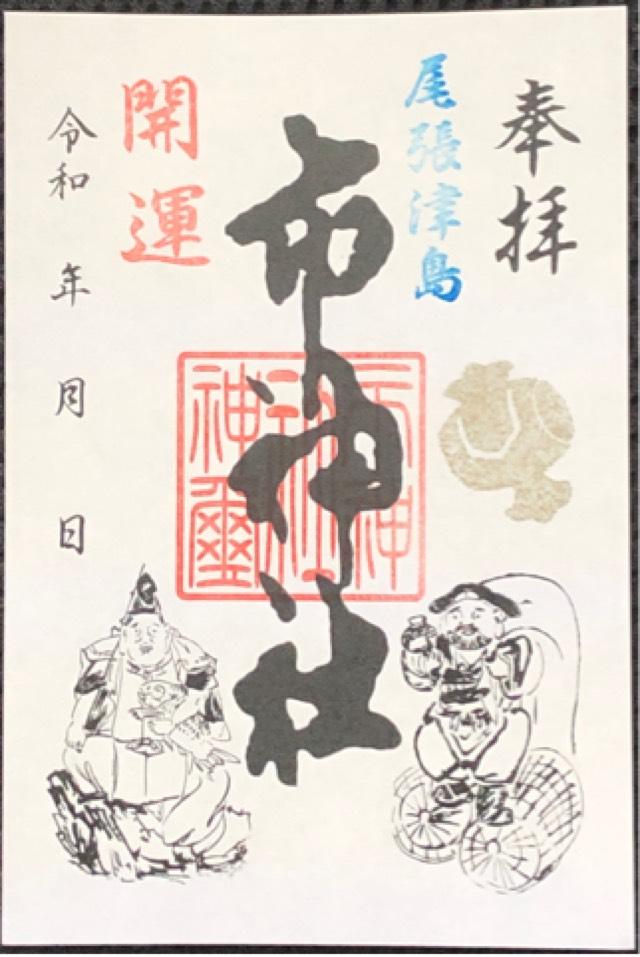 奉拝
尾張津島
市神社
市神
神社
神璽
開運
令和 年 月 日